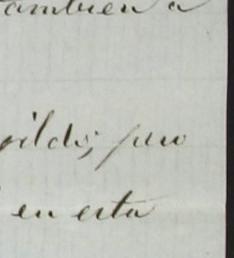 ambien a
oilds; pero
en esta